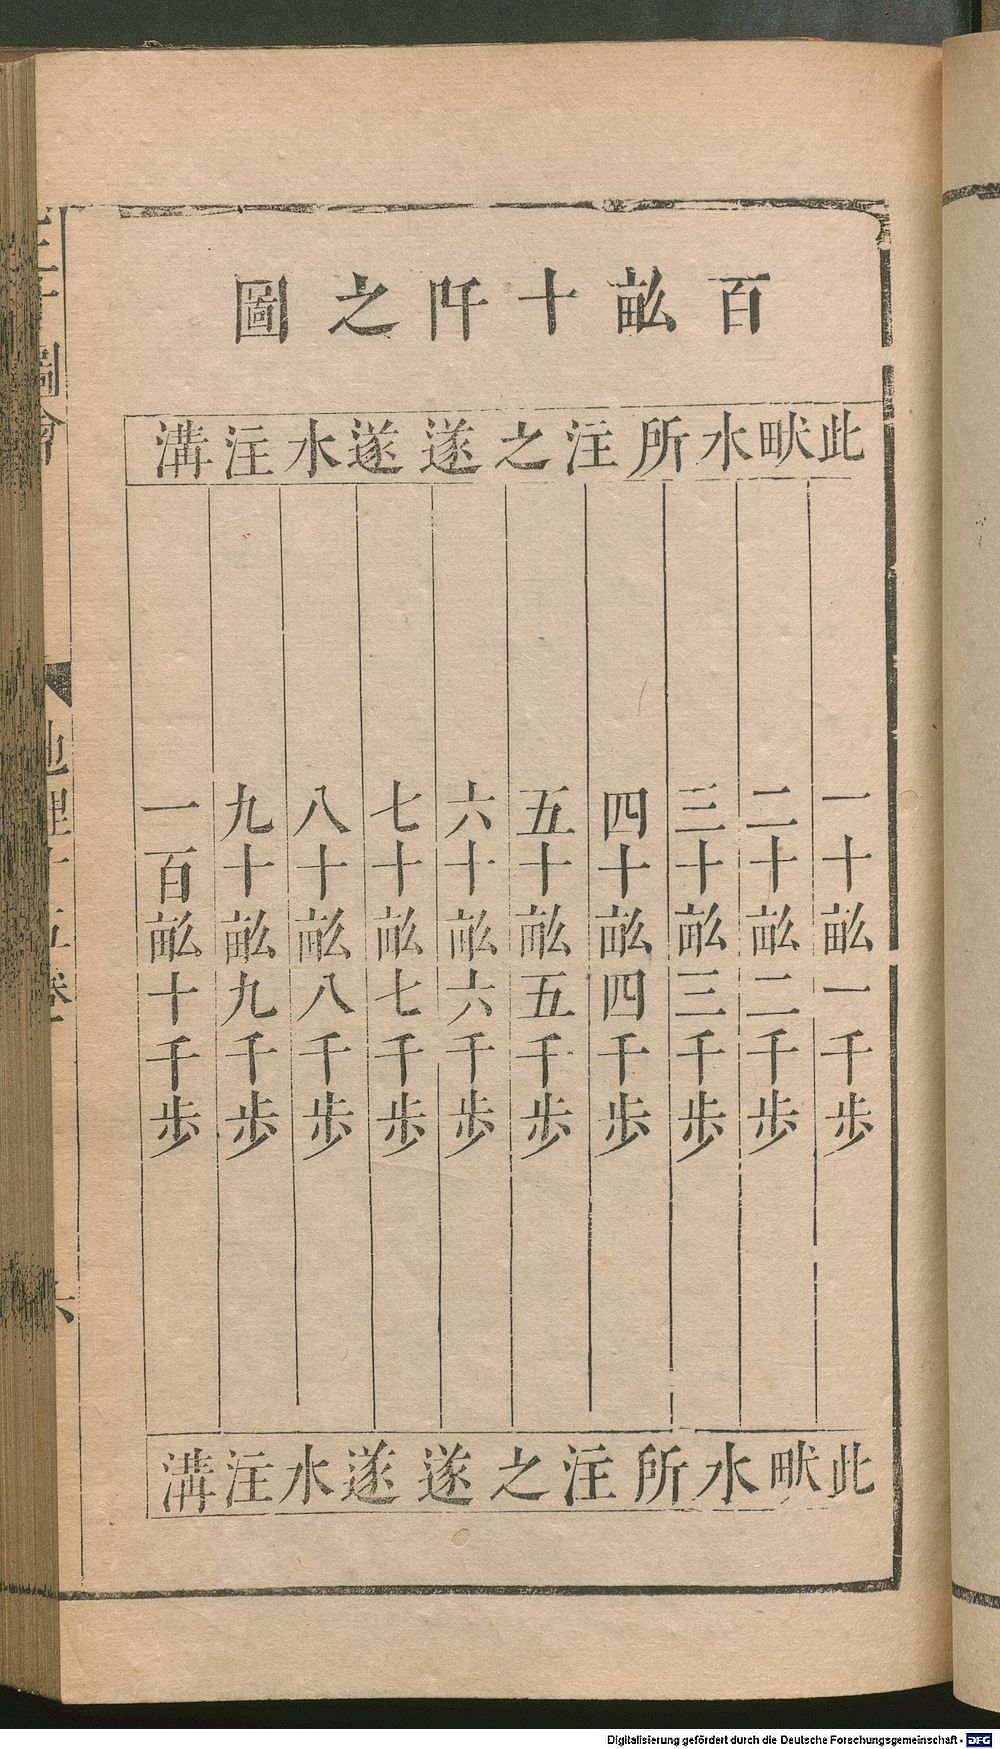 百畝十阡之圖
此畎水所注之遂遂水注溝
一十畝一千步
二十畝二千步
三十畝三千步
四十畝四千步
五十畝五千步
六十畝六千步
七十畝七千步
八十畝八千步
九十畝九千步
一百畝十千步
此畎水所注之遂遂水注溝
圖會
地理十五卷
六
Digitalisierung gefördert durch die Deutsche Forschungsgemeinschaft - DFG